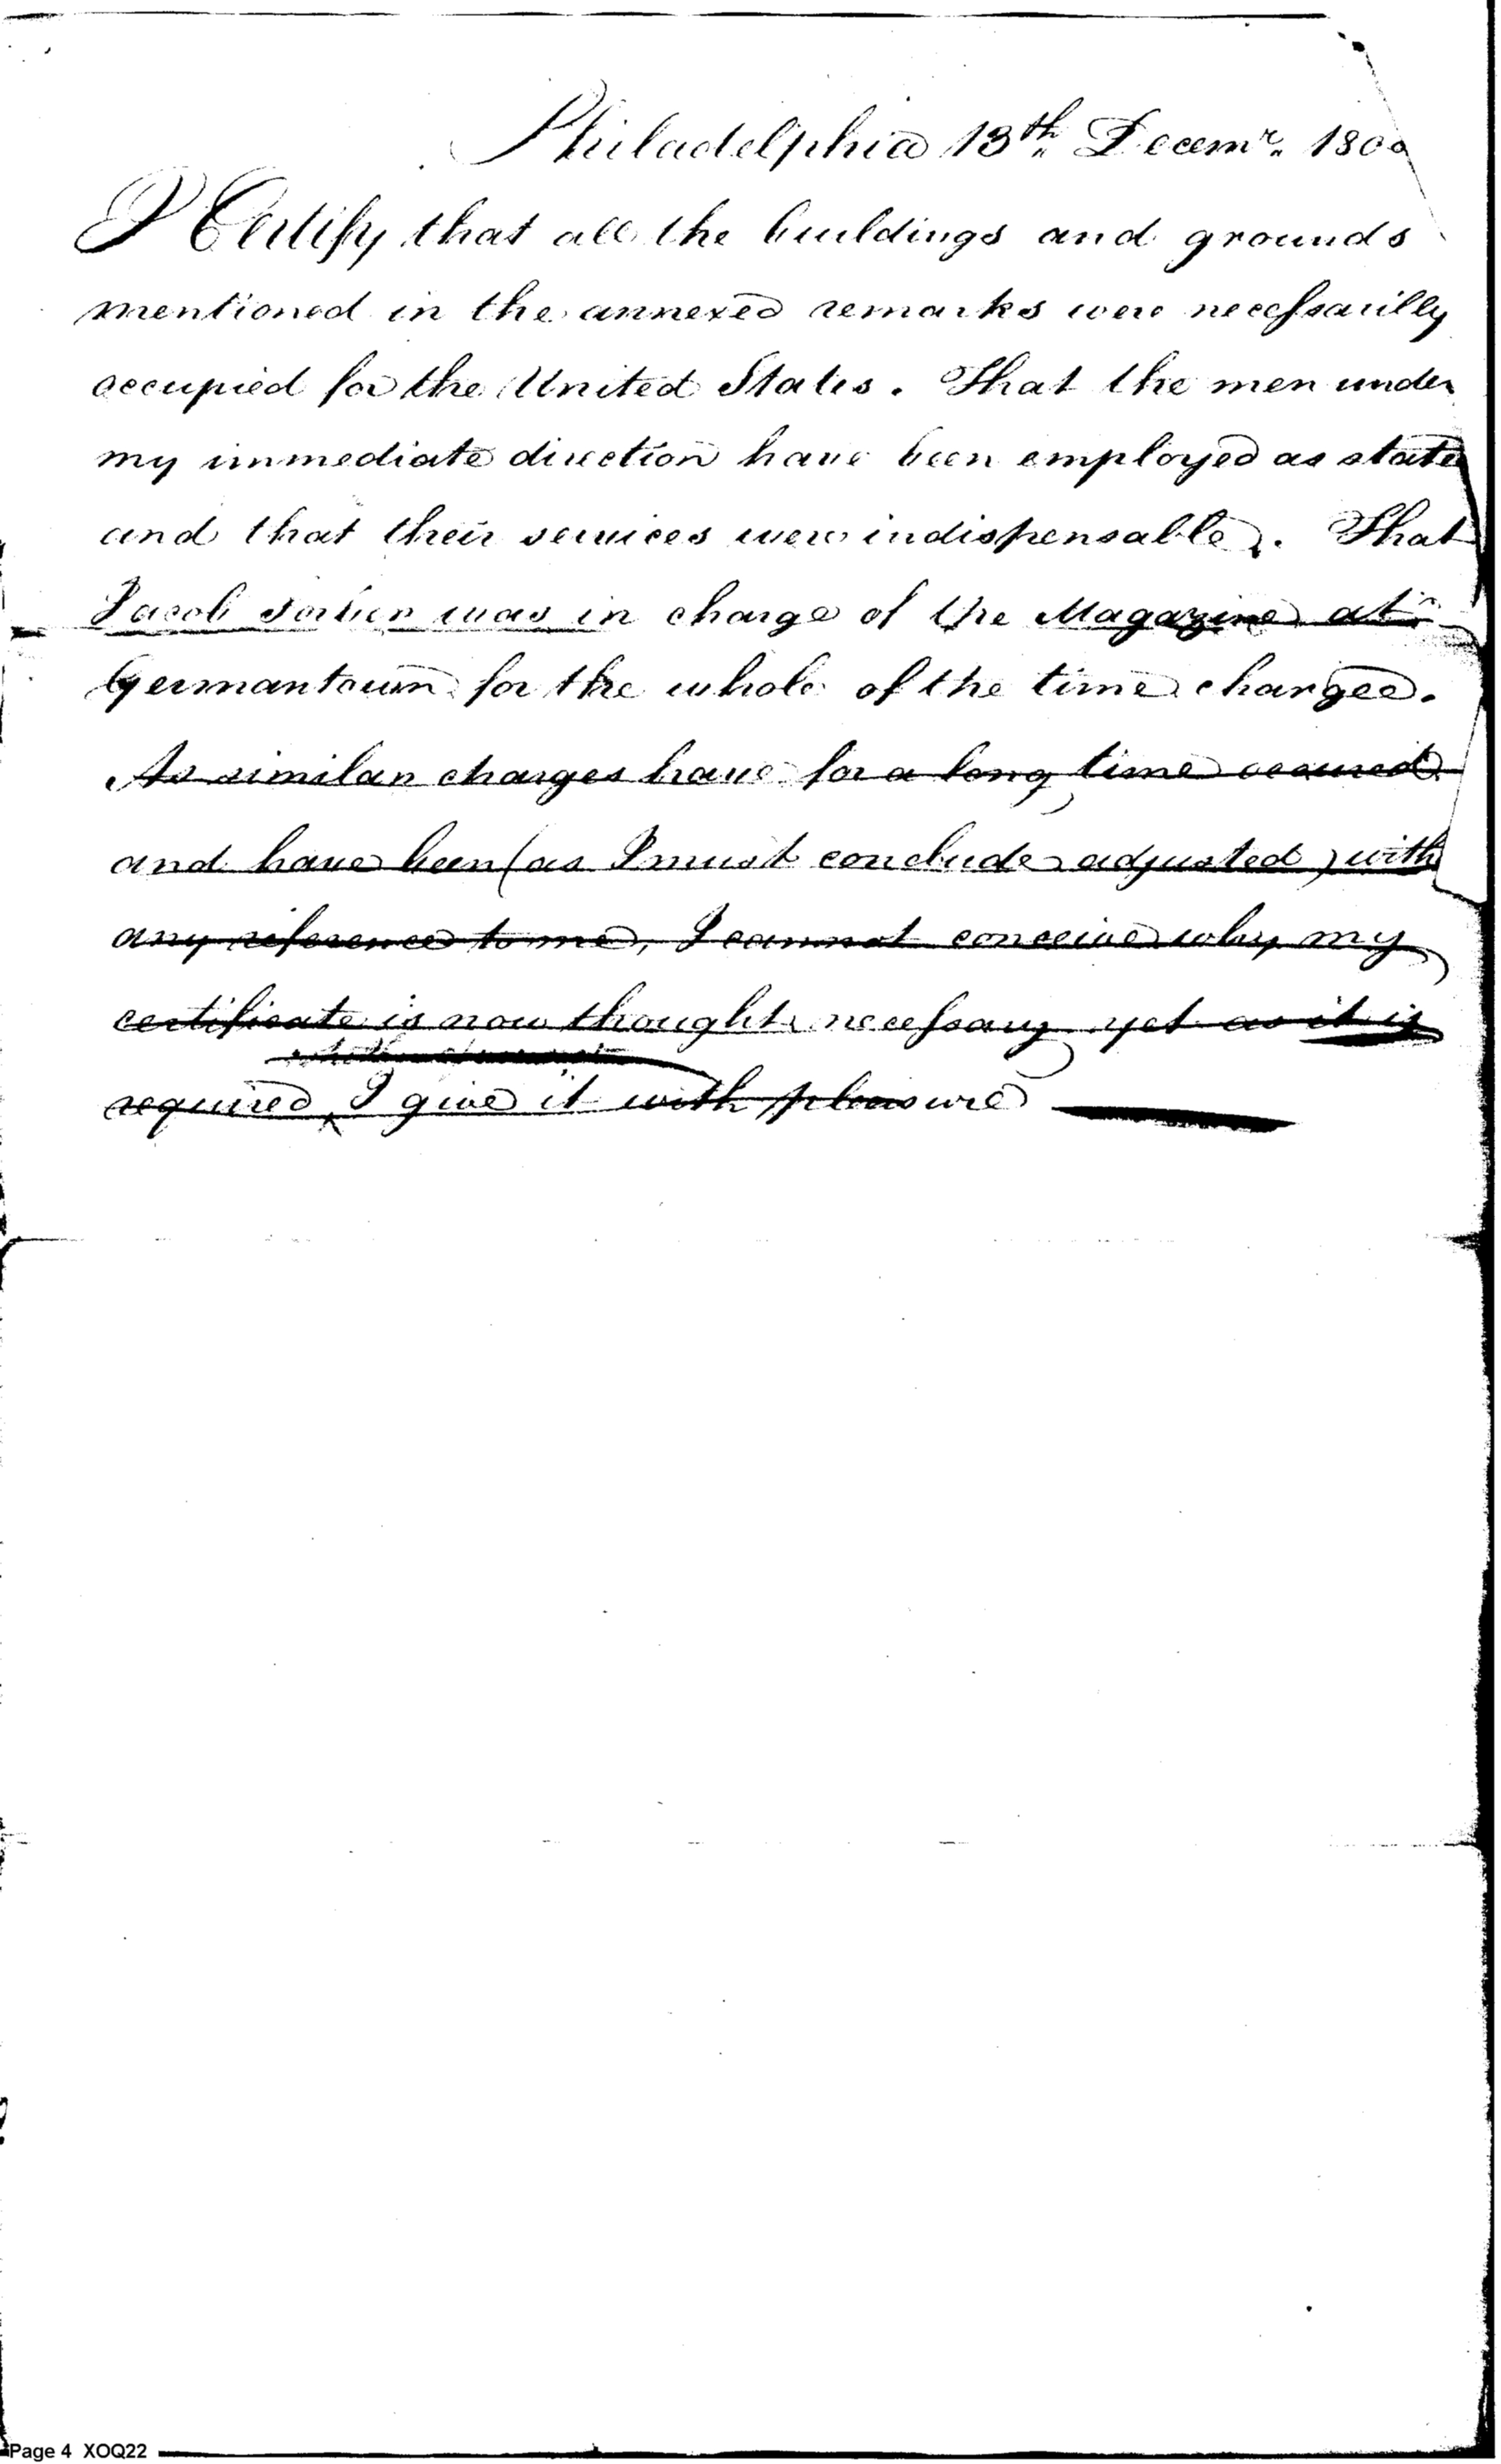 Philadelphia 13th Decemr. 1800
I Certify that all the buildings and grounds
mentioned in the annexed remarks were necessarilly
occupied for the United States. That the men under
my immediate direction have been employed as state
and that their services were indispensable. That
Jacob was in charge of the Magazine at
Germantown for the whole of the time charged.
As similar charges have for a long time occured
and have been (as I must conclude adjusted) with
any reference to me, I cannot conceive why my
certificate is now thought necessary yet as it is
required, I give it with pleasure
Page 4 XOQ22